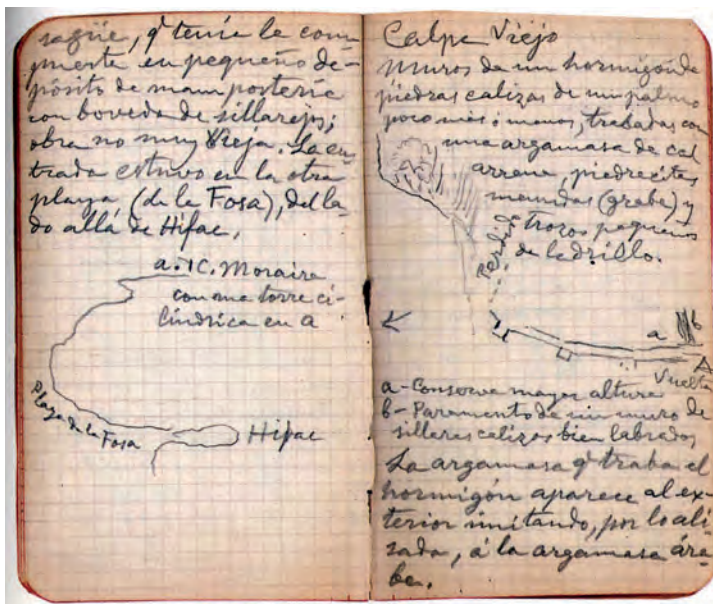 sagüe, q tenía la com
puerta en pequeño de-
pósito de mamposteria
con boveda de sillarejos;
obra no muy vieja. La en
trada estuvo en la otra
playa, (de la Fosa), del la-
do allá de Hifac,
a. | C. Moraira
con una torre ci-
líndrica en a
Playa de la Fosa
Hifac
Calpe Viejo
Muros de un hormigón de
piedras calizas de un palmo
poco más ó menos, trabadas con
una argamasa de cal
arrena, piedrecitas
menudas (graba) y
trozos pequeños
de ladrillo.
Perdido
a b
A
Vuelta
a - Conserva mayor altura
b - Paramento de un muro de
sillares calizos bien labrados
La argamasa q traba el
hormigón aparece al ex-
terior imitando, por lo ali-
sada, á la argamasa ára-
be.